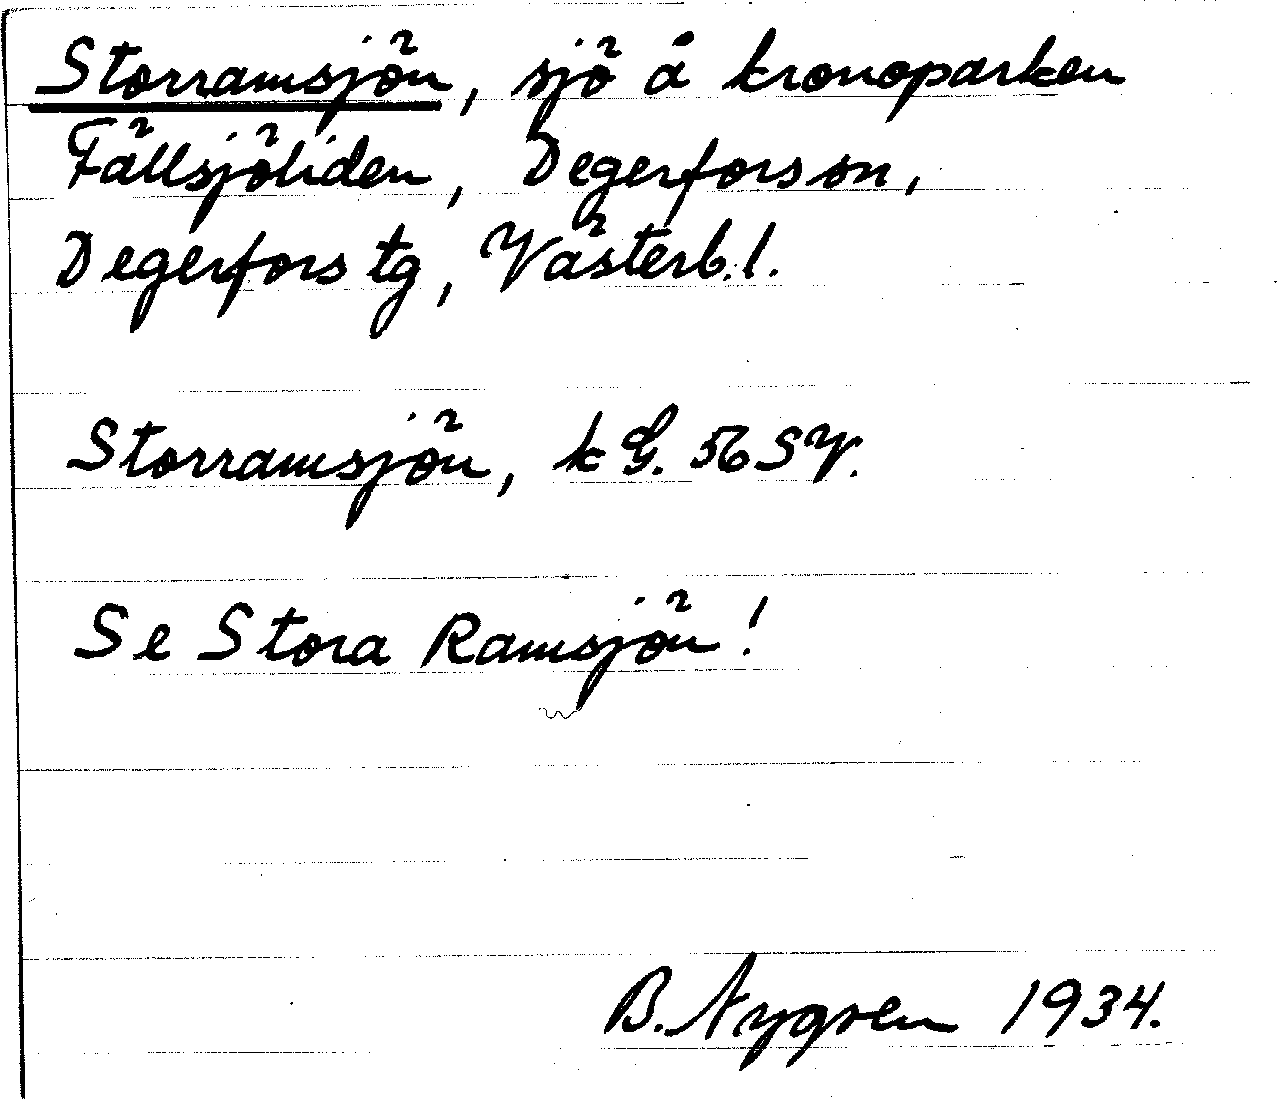 Storramsjön, sjö å kronoparken
Fällsjöliden, Degerfors sn,
Degerfors tg, Västerb. l.
Storramsjön, k G. 56 SV.
Se Stora Ramsjön!
B. Nygren 1934.